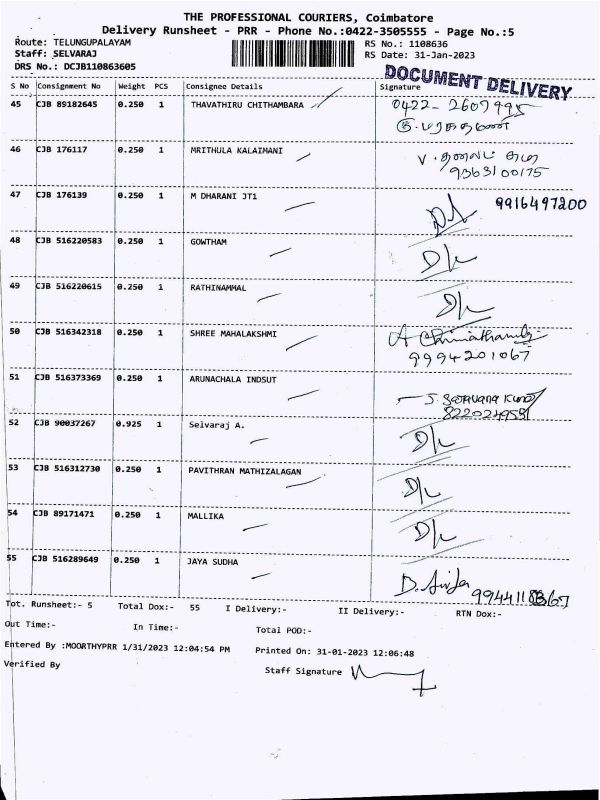 THE PROFESSIONAL COURIERS, Coimbatore
Delivery Runsheet - PRR - Phone No.:0422-3505555 - Page No.:5
Route: TELUNGUPALAYAM RS No.: 1108636
Staff: SELVARAJ RS Date: 31-Jan-2023
DRS No.: DCJB110863605
DOCUMENT DELIVERY
S No Consignment No Weight PCS Consignee Details Signature
45 CJB 89182645 0.250 1 THAVATHIRU CHITHAMBARA 0422-2607995
46 CJB 176117 0.250 1 MRITHULA KALAIMANI
9363100175
47 CJB 176139 0.250 1 M DHARANI JT1 9916497200
48 CJB 516220583 0.250 1 GOWTHAM D/L
49 CJB 516220615 0.250 1 RATHINAMMAL D/L
50 CJB 516342318 0.250 1 SHREE MAHALAKSHMI
9994201067
51 CJB 516373369 0.250 1 ARUNACHALA INDSUT
52 CJB 90037267 0.925 1 Selvaraj A. D/L
53 CJB 516312730 0.250 1 PAVITHRAN MATHIZALAGAN D/L
54 CJB 89171471 0.250 1 MALLIKA D/L
55 CJB 516289649 0.250 1 JAYA SUDHA
Tot. Runsheet:- 5 Total Dox:- 55 I Delivery:- II Delivery:- RTN Dox:-
Out Time:- In Time:- Total POD:-
Entered By :MOORTHYPRR 1/31/2023 12:04:54 PM Printed On: 31-01-2023 12:06:48
Verified By Staff Signature